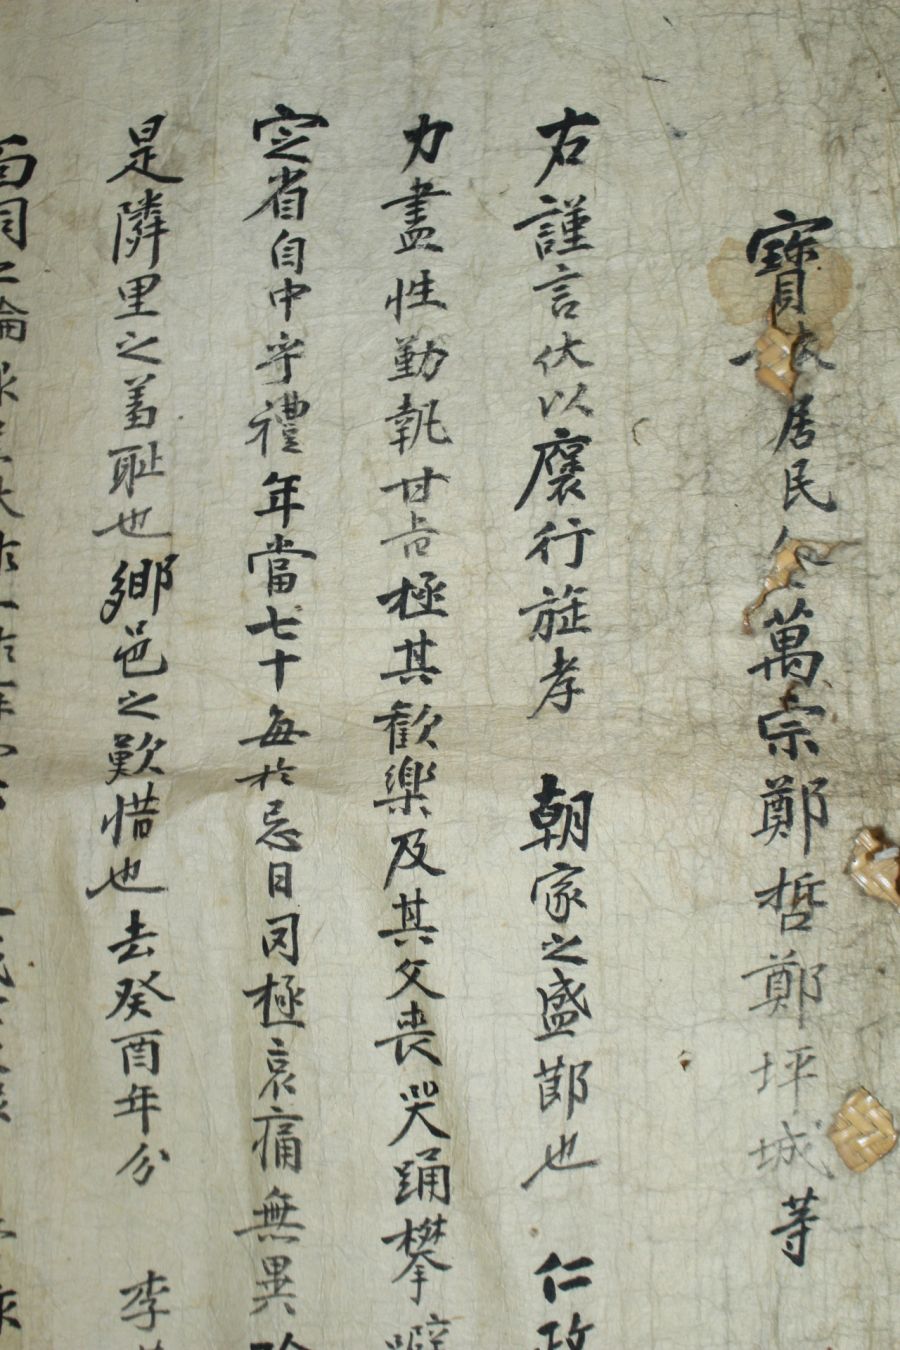 寶城居民 萬宗鄭哲鄭坪城等
右謹言伏以襃行旌孝 朝家之盛節也 仁政
力盡性勤執甘旨極其歡樂及其父喪哭踊攀擗
定省自中乎禮年當七十每於忌日罔極哀痛無異
是隣里之羞耻也鄉邑之歎惜也去癸酉年分 李